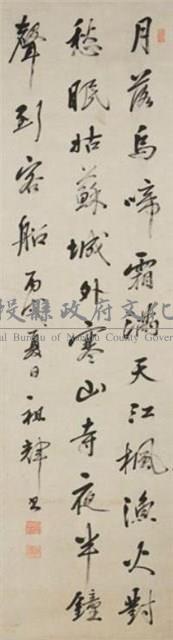 月落烏啼霜滿天江楓漁火對
愁眠姑蘇城外寒山寺夜半鐘
聲到客船 丙寅夏日 祖輝書
投縣政府文化
ral Bureau of Nantou County Gover